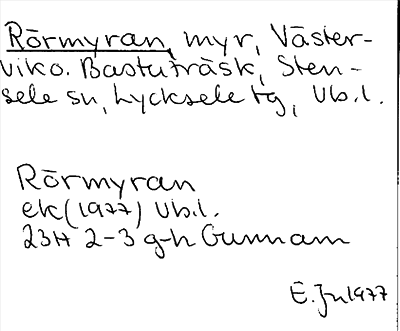 Rörmyran, myr, Väster-
viko. Bastuträsk, Sten-
sele sn, Lycksele tg, Vb.l.
Rörmyran
ek (1977) Vb.l.
23H 2-3 g-h Gunnarn
E.Jn 1977